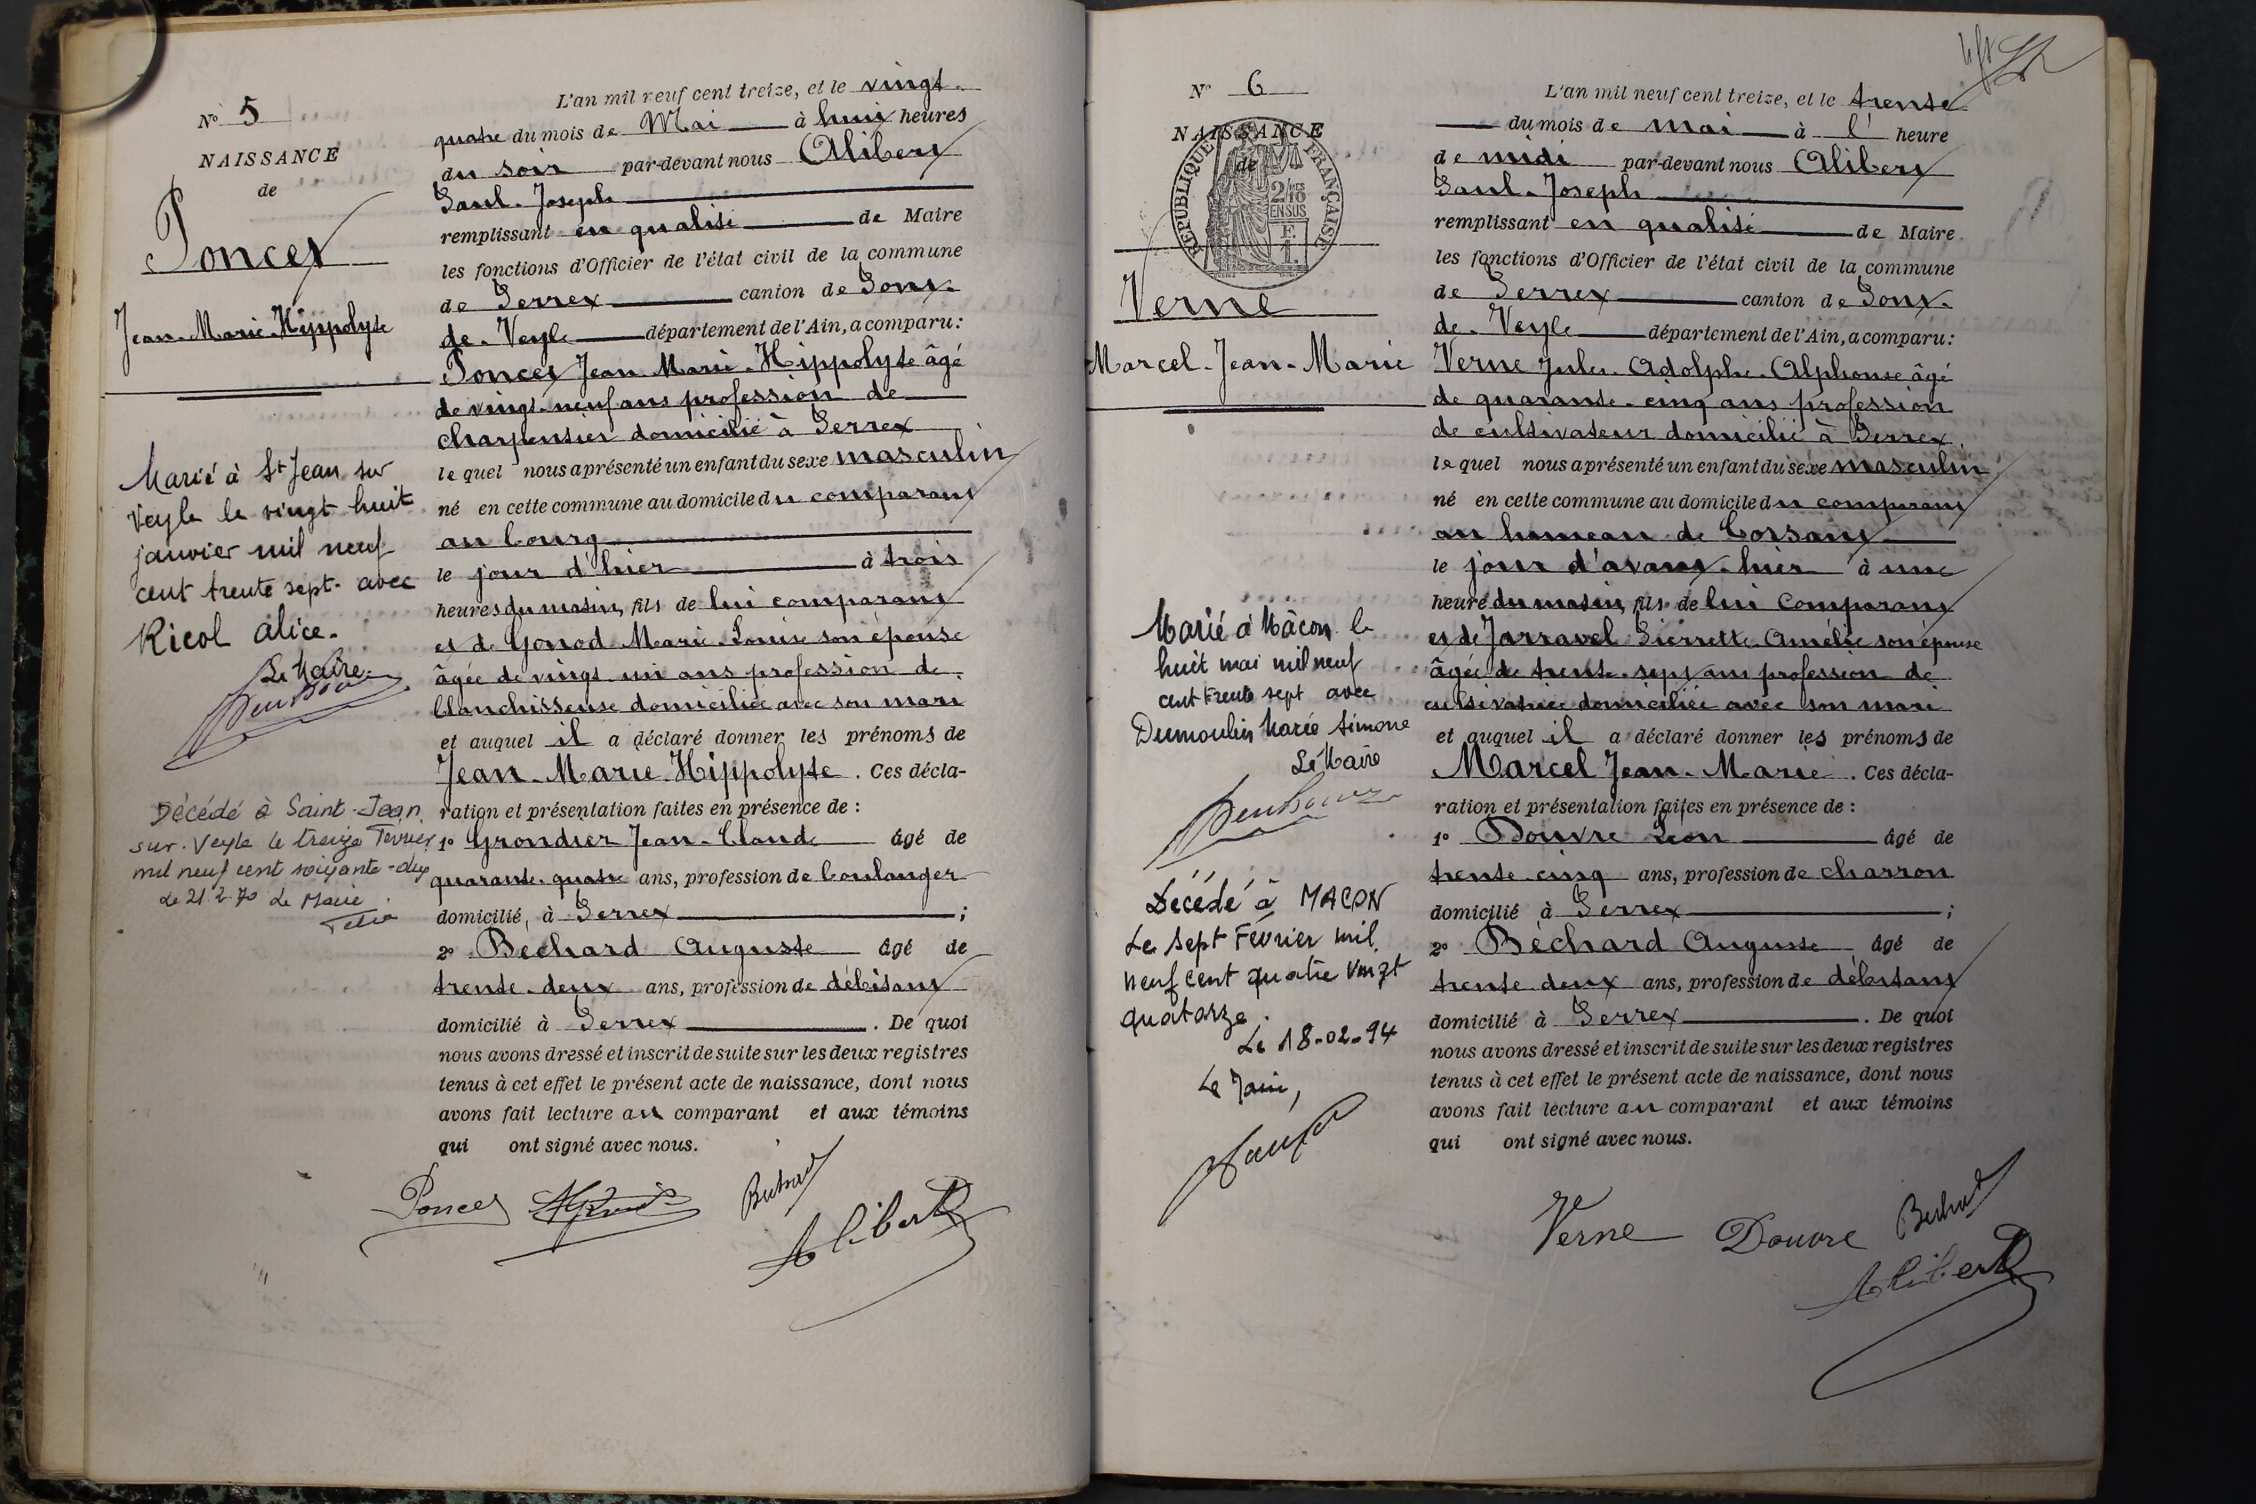 N° 5
NAISSANCE
de
Poncet
Jean-Marie-Hippolyte
Marié à St Jean sur
Veyle le vingt huit
janvier mil neuf
cent trente sept avec
Ricol Alice.
Le Maire
Décédé à Saint-Jean
sur-Veyle le treize Février
mil neuf cent soixante-dix
Le 21.2.70 Le Maire
L'an mil neuf cent treize, et le vingt-
quatre du mois de Mai à huit heures
du soir par-devant nous Alibert
Paul-Joseph
remplissant en qualité de Maire
les fonctions d'Officier de l'état civil de la commune
de Perrex canton de Pont-
de-Veyle département de l'Ain, a comparu:
Poncet Jean-Marie-Hippolyte âgé
de vingt-neuf ans profession de
charpentier domicilié à Perrex
lequel nous a présenté un enfant du sexe masculin
né en cette commune au domicile du comparant
au bourg
le jour d'hier à trois
heures du matin, fils de lui comparant
et de Gonod Marie-Louise son épouse
âgée de vingt-un ans profession de
blanchisseuse domiciliée avec son mari
et auquel il a déclaré donner les prénoms de
Jean-Marie-Hippolyte. Ces décla-
ration et présentation faites en présence de :
1° Grondier Jean-Claude âgé de
quarante-quatre ans, profession de boulanger
domicilié, à Perrex ;
2° Bechard Auguste âgé de
trente-deux ans, profession de débitant
domicilié à Perrex . De quoi
nous avons dressé et inscrit de suite sur les deux registres
tenus à cet effet le présent acte de naissance, dont nous
avons fait lecture au comparant et aux témoins
qui ont signé avec nous.
Poncet Bechard
Alibert
N° 6
NAISSANCE
de
RÉPUBLIQUE FRANÇAISE
2/10 EN SUS
Verne
Marcel-Jean-Marie
Marié à Mâcon le
huit mai mil neuf
cent trente sept avec
Dumoulin Marie Simone
Le Maire
Décédé à MACON
Le sept Février mil
neuf cent quatre vingt
quatorze.
Le 18-02-94
Le Maire,
L'an mil neuf cent treize, et le trente
du mois de mai à l' heure
de midi par-devant nous Alibert
Paul-Joseph
remplissant en qualité de Maire
les fonctions d'Officier de l'état civil de la commune
de Perrex canton de Pont-
de-Veyle département de l'Ain, a comparu:
Verne Jules-Adolphe-Alphonse âgé
de quarante-cinq ans profession
de cultivateur domicilié à Perrex,
lequel nous a présenté un enfant du sexe masculin
né en cette commune au domicile du comparant
au hameau de Corsant
le jour d'avant-hier à une
heure du matin, fils de lui comparant
et de Jarravel Pierrette-Amélie son épouse
âgée de trente-sept ans profession de
cultivatrice domiciliée avec son mari
et auquel il a déclaré donner les prénoms de
Marcel Jean-Marie. Ces décla-
ration et présentation faites en présence de :
1° Douvre Léon âgé de
trente-cinq ans, profession de charron
domicilié à Perrex ;
2° Béchard Auguste âgé de
trente-deux ans, profession de débitant
domicilié à Perrex . De quoi
nous avons dressé et inscrit de suite sur les deux registres
tenus à cet effet le présent acte de naissance, dont nous
avons fait lecture au comparant et aux témoins
qui ont signé avec nous.
Verne Douvre Bechard
Alibert